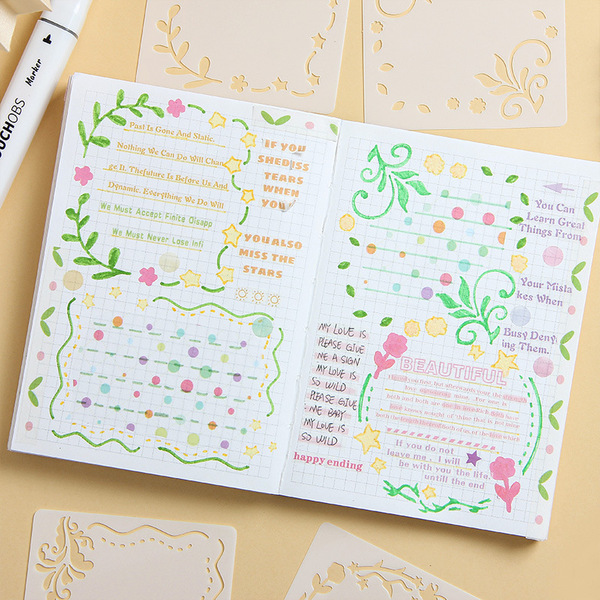 OUCHOBS
Marker
Past Is Gone And Static.
Nothing We Can Do Will Chan
ge It. Thefuture Is Before Us And
Dynamic. Everything We Do Will
We Must Accept Finite Disapp
We Must Never Lose Infi
IF YOU
SHED
TEARS
WHEN
YOU
YOU ALSO
MISS THE
STARS
You Can
Learn Great
Things From
Your Mista
kes When
Busy Deny
ing Them.
MY LOVE IS
PLEASE GIVE
ME A SIGN
MY LOVE IS
SO WILD
PLEASE GIVE
ME BABY
MY LOVE IS
SO WILD
happy ending
BEAUTIFUL
If you do not
leave me, I will
be with you the life.
untill the end